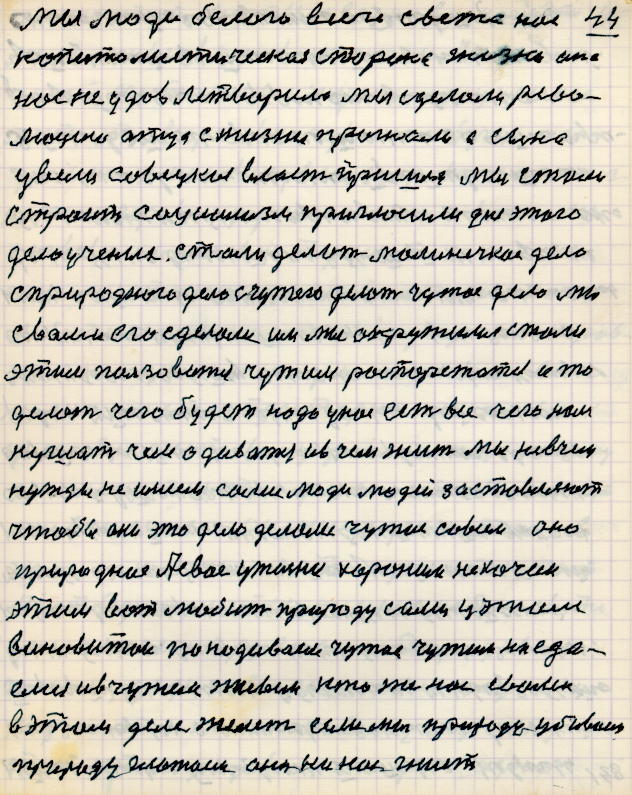 Мы люди белого всего света нас 44
копитолистическая сторона жизни она
нас не удовлетворила мы сделали рево-
люцию отца с жизни прогнали а сына
увели советская власт пришла мы стали
строить социализм пригласили для этого
дела ученых. стали делат дело
с природного дела чужого делат чужое дело мы
с вами его сделали им мы окружилис стали
этим ползоватся чужим росторгатся и то
делат чего будет надо у нас ест все чего нам
кушат чем одеватся и в чем жит мы ни в чем
нужды не имеем сами люди людей заставляют
чтобы они это дело делали чужое совсем оно
природное хороним не хочем
этим вот любит природу сами у этим
виноватои чужое чужим наеда-
емся и в чужем живем кто же нас с вами
в этом деле жалеет если мы природу убиваем
природу она на нас